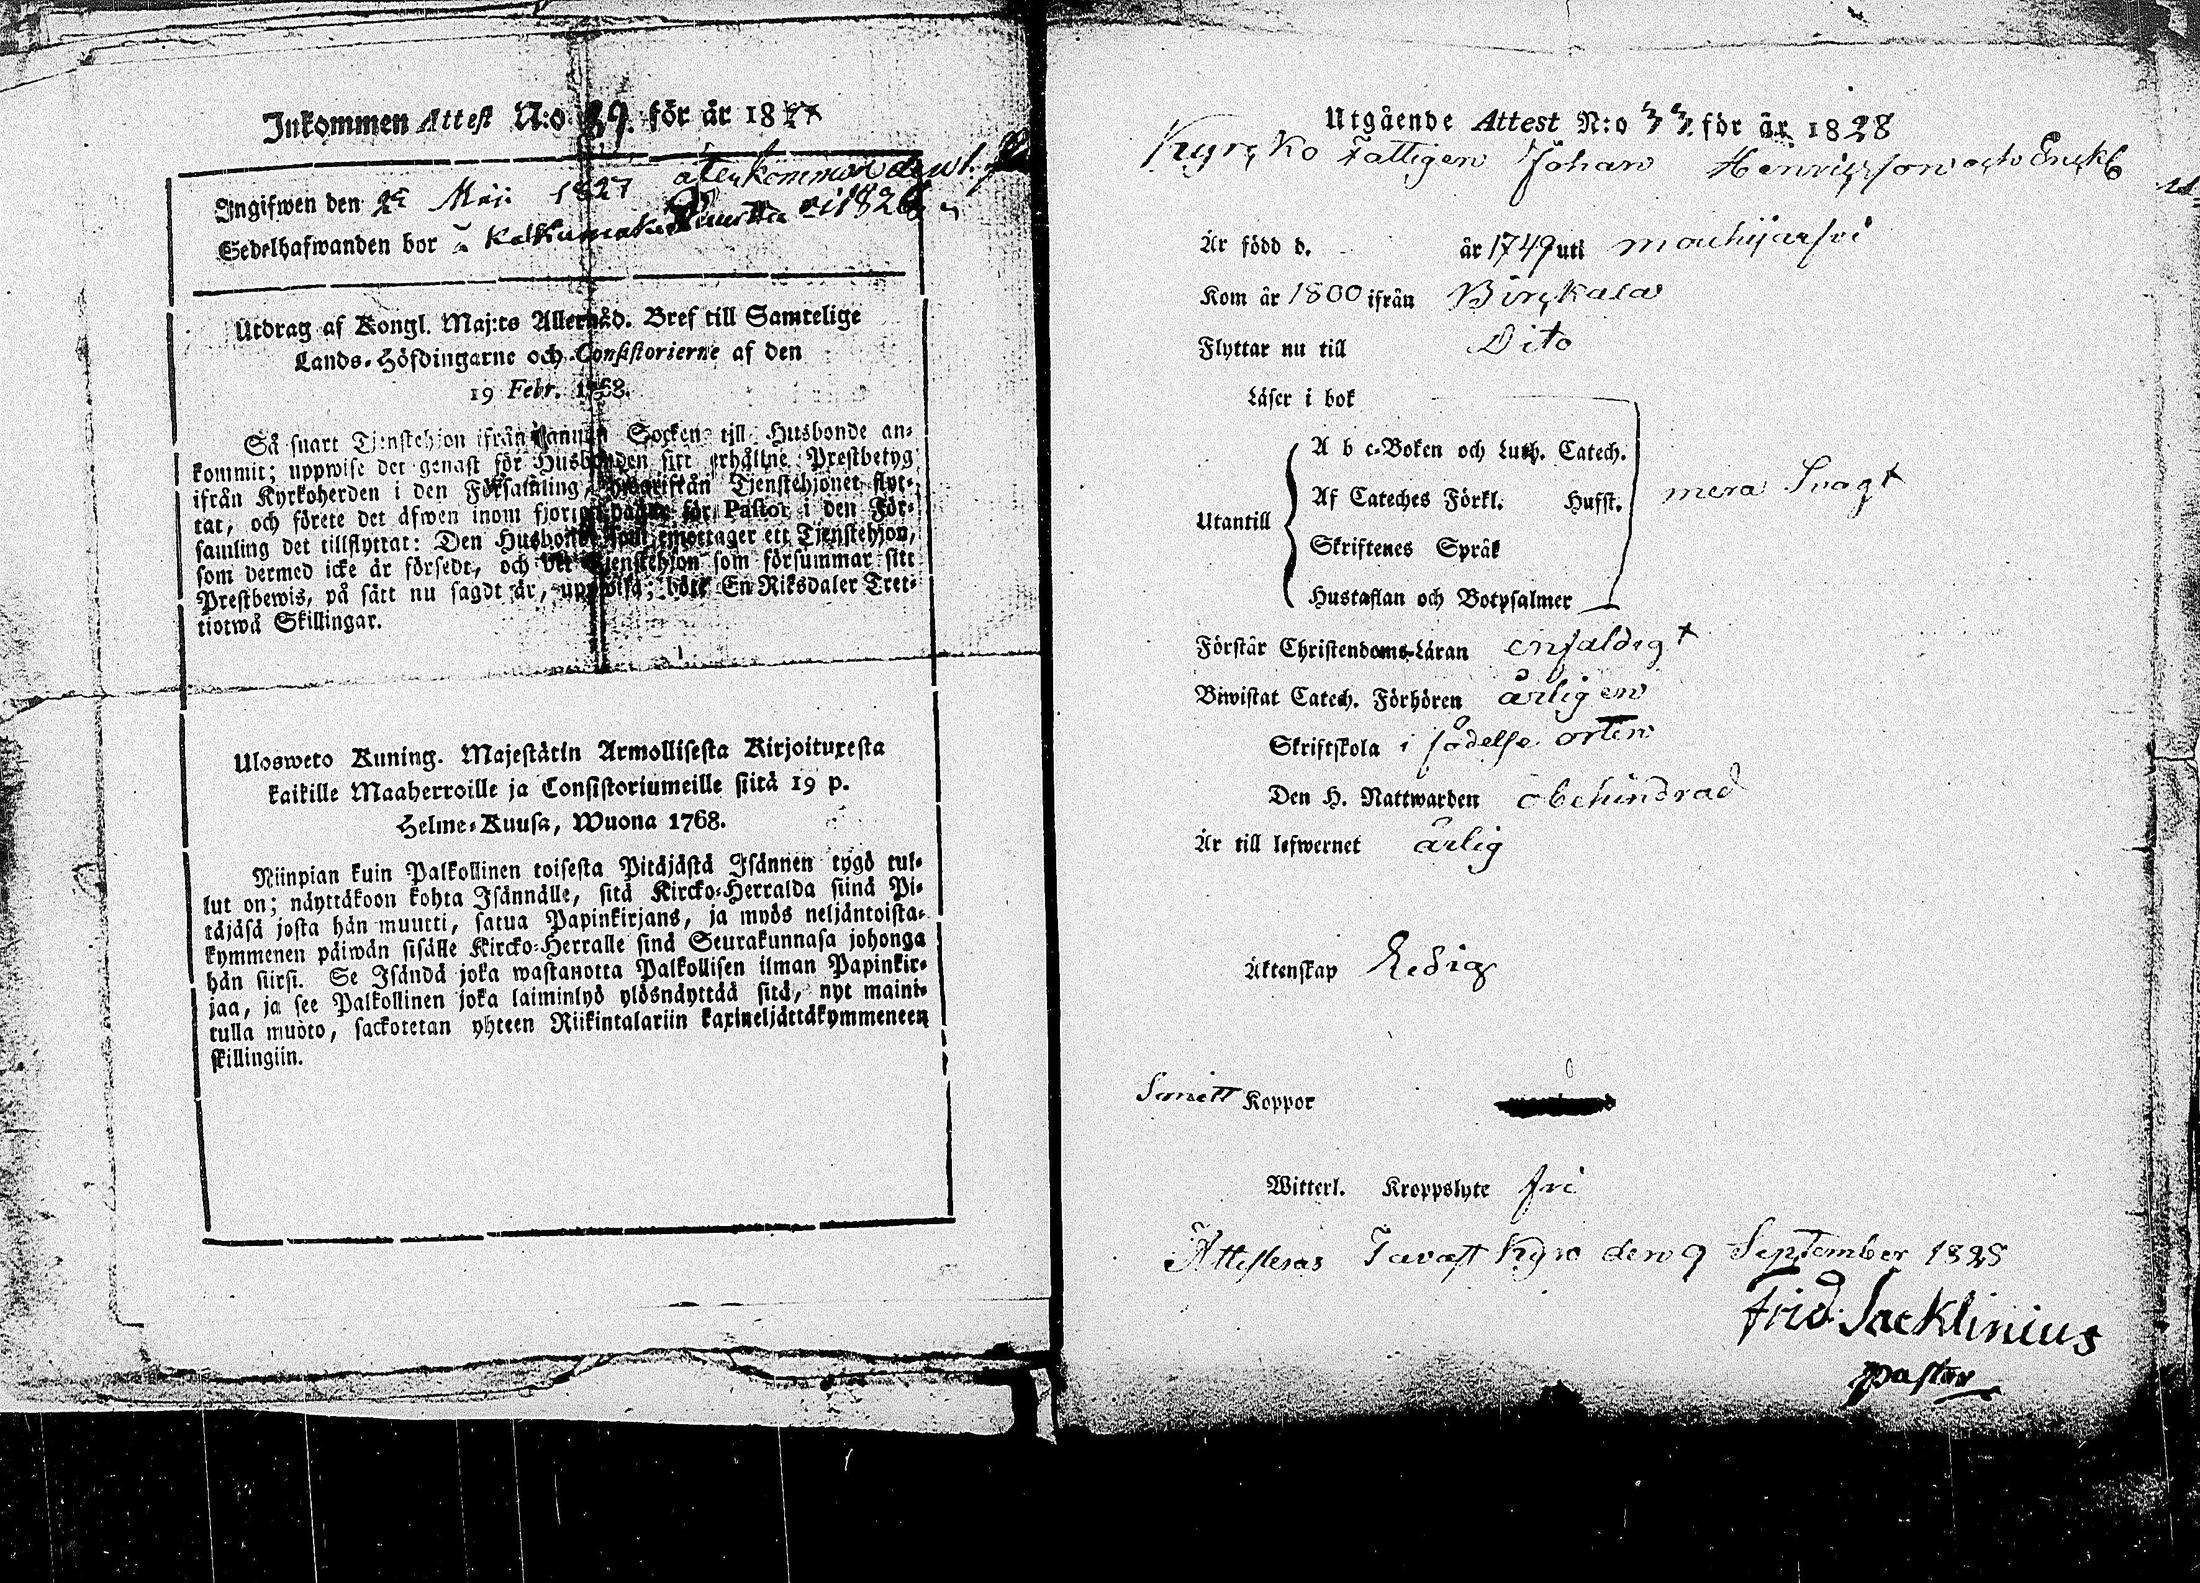 Inkommen Attest N:o 39. för år 1827
Ingifwen den 25 Maji 1827 återkommen
Sedelhafwanden bor i 1826
Utdrag af Kongl. Maj:ts Allernåd. Bref till Samtelige
Lands-Höfdingarne och Consistorierne af den
19 Febr. 1768.
Så snart Tjenstehjon ifrån annan Socken till Husbonde an-
kommit; uppwise det genast för Husbonden sitt erhållne Prestbetyg
ifrån Kyrkoherden i den Församling, hwarifrån Tjenstehjonet flyt-
tat, och förete det äfwen inom fjorton dagar för Pastor i den För-
samling det tillflyttat: Den Husbonde som emottager ett Tjenstehjon,
som dermed icke är försedt, och det Tjenstehjon som försummar sitt
Prestbewis, på sätt nu sagdt är, uppwisa; böte En Riksdaler Tret-
tiotwå Skillingar.
Ulosweto Kuning. Majestätin Armollisesta Kirjoituxesta
kaikille Maaherroille ja Consistoriumeille siitä 19 p.
Helme-Kuusa, Wuona 1768.
Niinpian kuin Palkollinen toisesta Pitäjästä Isännen tygö tul-
lut on; näyttäkoon kohta Isännälle, sitä Kircko-Herralda siinä Pi-
täjäsä josta hän muutti, satua Papinkirjans, ja myös neljäntoista-
kymmenen päiwän sisälle Kircko-Herralle sinä Seurakunnasa johonga
hän siirsi. Se Isändä joka wastanotta Palkollisen ilman Papinkir-
jaa, ja see Palkollinen joka laiminlyö ylösnäyttää sitä, nyt maini-
tulla muoto, sackotetan yhteen Riikintalariin kaxineljättäkymmeneen
skillingiin.
Utgående Attest N:o 33. för år 1828
Kyrcko Fattigen Johan Henricsson och Enckl
Är född d. år 1749 uti Mouhijarfvi
Kom år 1800 ifrån Birckala
Flyttar nu till Dito
Läser i bok
A b c-Boken och Luth. Catech.
Af Cateches Förkl. Hufst. mera Svagt
Utantill
Skriftenes Språk
Hustaflan och Botpsalmer
Förstår Christendoms-Läran enfaldigt
Biwistat Catech. Förhören årligen
Skriftskola i födelse orten
Den H. Nattwarden obehindrad
Är till lefwernet ärlig
Äktenskap Ledig
Koppor
Witterl. Kroppslyte fri
Attesteras Tavast Kyro den 9 September 1828
Frid: Sacklinius
Pastor